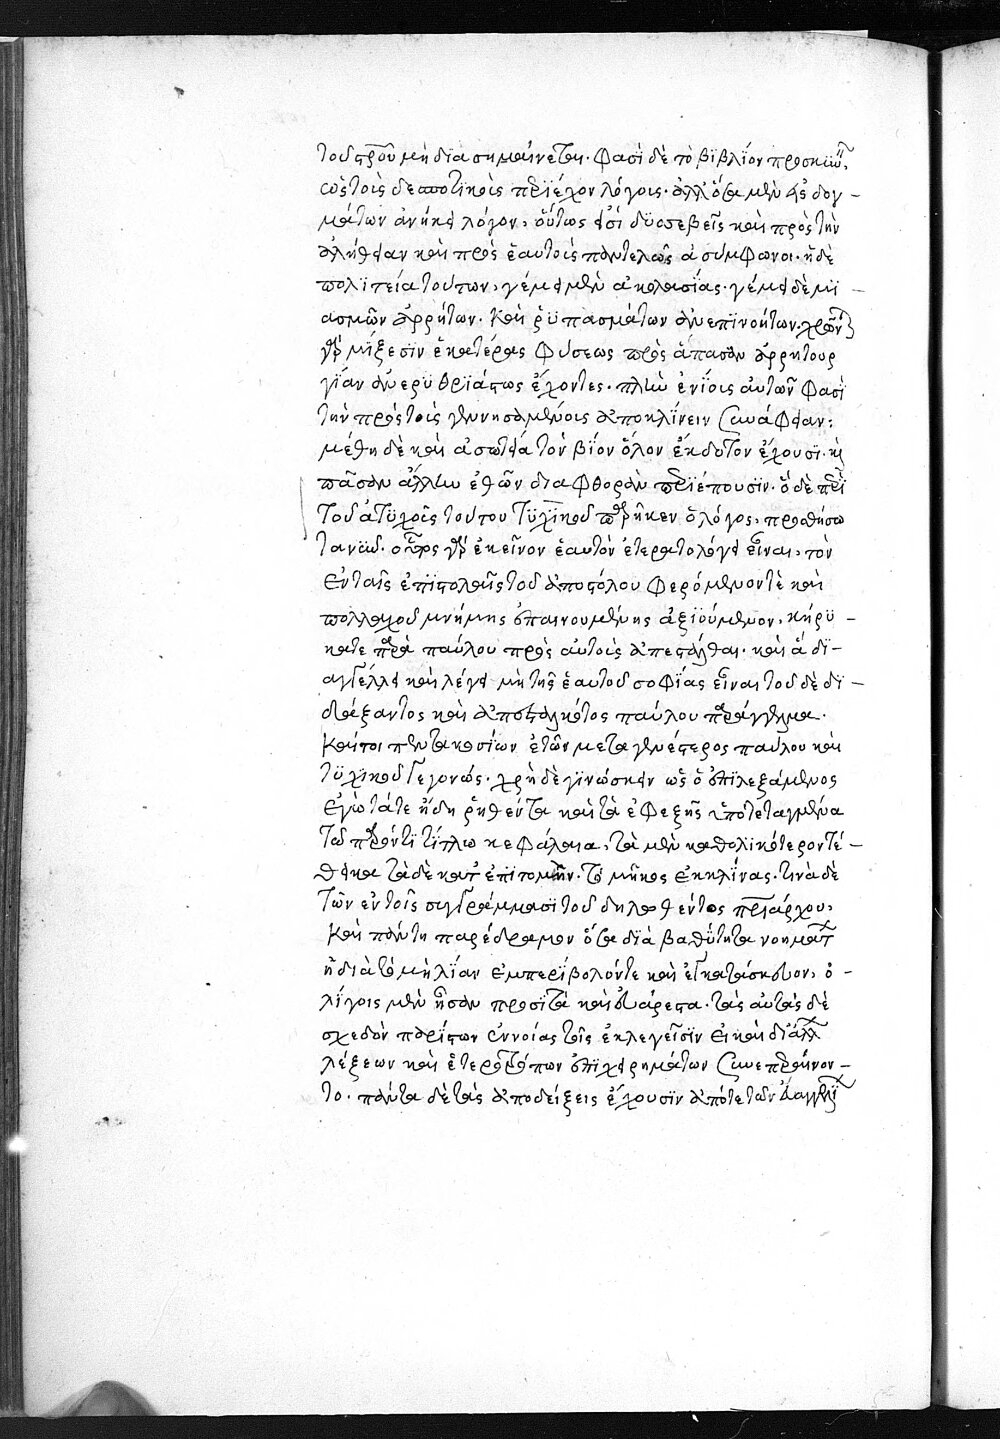 τοῦ σταυροῦ μὴ διασημαίνεται· φασὶ δὲ τὸ βιβλίον προσκυνεῖν,
ὡς τοῖς δεσποτικοῖς περιέχον λόγοις· ἀλλ' ὅσα μὲν εἰς δογ-
μάτων ἀνήκει λόγον, οὕτως εἰσὶ δυσσεβεῖς καὶ πρὸς τὴν
ἀλήθειαν καὶ πρὸς ἑαυτοὺς παντελῶς ἀσύμφωνοι· ἡ δὲ
πολιτεία τούτων, γέμει μὲν ἀκολασίας· γέμει δὲ μι-
ασμῶν ἀρρήτων· καὶ ῥυπασμάτων ἀνεπινοήτων· χρῶνται
γὰρ μίξεσιν ἑκατέρας φύσεως πρὸς ἅπασαν ἀρρητουρ
γίαν ἀνερυθριάστως ἔχοντες· πλὴν ἐνίοις αὐτῶν φασὶ
τὴν πρὸς τοὺς γεννησαμένους ἀποκλίνειν συνάφειαν·
μέθη δὲ καὶ ἀσωτεία τὸν βίον ὅλον ἔκδοτον ἔχουσι· καὶ
πᾶσαν ἄλλην ἐθῶν διαφθορὰν περιέπουσιν· ὁ δὲ περὶ
τοῦ ἀτυχοῦς τούτου τυχικοῦ παρῆκεν ὁ λόγος, προσθήσω
τανῦν· οὗτος γὰρ ἐκεῖνον ἑαυτὸν ἐτερατολόγει εἶναι, τὸν
ἐν ταῖς ἐπιστολαῖς τοῦ ἀποστόλου φερόμενόν τε καὶ
πολλαχοῦ μνήμης ἐπαινουμένης ἀξιούμενον, κήρυ-
κά τε παρὰ παύλου πρὸς αὐτοὺς ἀπεστάλθαι· καὶ ἃ δι-
αγγέλλει καὶ λέγει μὴ τῆς ἑαυτοῦ σοφίας εἶναι τοῦ δὲ δι-
διδάξαντος καὶ ἀποσταλκότος παύλου παράγγελμα·
καίτοι πεντακοσίων ἐτῶν μεταγενέστερος παύλου καὶ
τυχικοῦ γεγονώς· χρὴ δὲ γινώσκειν ὡς ὁ ἐπιλεξάμενος
ἐγὼ τά τε ἤδη ῥηθέντα καὶ τὰ ἐφεξῆς ὑποτεταγμένα
τῶ παρόντι τίτλω κεφάλαια, τὰ μὲν καθολικώτερον τέ-
θεικα τὰ δὲ κατ' ἐπιτομήν· τὸ μῆκος ἐκκλίνας· τινὰ δὲ
τῶν ἐν τοῖς συγγράμμασι τοῦ δηλωθέντος πατριάρχου,
καὶ πάντη παρέδραμον ὅσα διὰ βαθύτητα νοημάτων
ἢ διὰ τὸ μὴ λίαν ἐμπερίβολόν τε καὶ ἐγκατάσκευον, ὀ-
λίγοις μὲν ἦσαν προσιτὰ καὶ εὐάρεστα· τὰς αὐτὰς δὲ
σχεδὸν παρίστων ἐννοίας τοῖς ἐκλεγεῖσιν εἰ καὶ δι' ἄλλων
λέξεων καὶ ἑτεροτρόπων ἐπιχειρημάτων συνεπεραίνον-
το· πάντα δὲ τὰς ἀποδείξεις ἔχουσιν ἀπό τε τῶν εὐαγγελικῶν